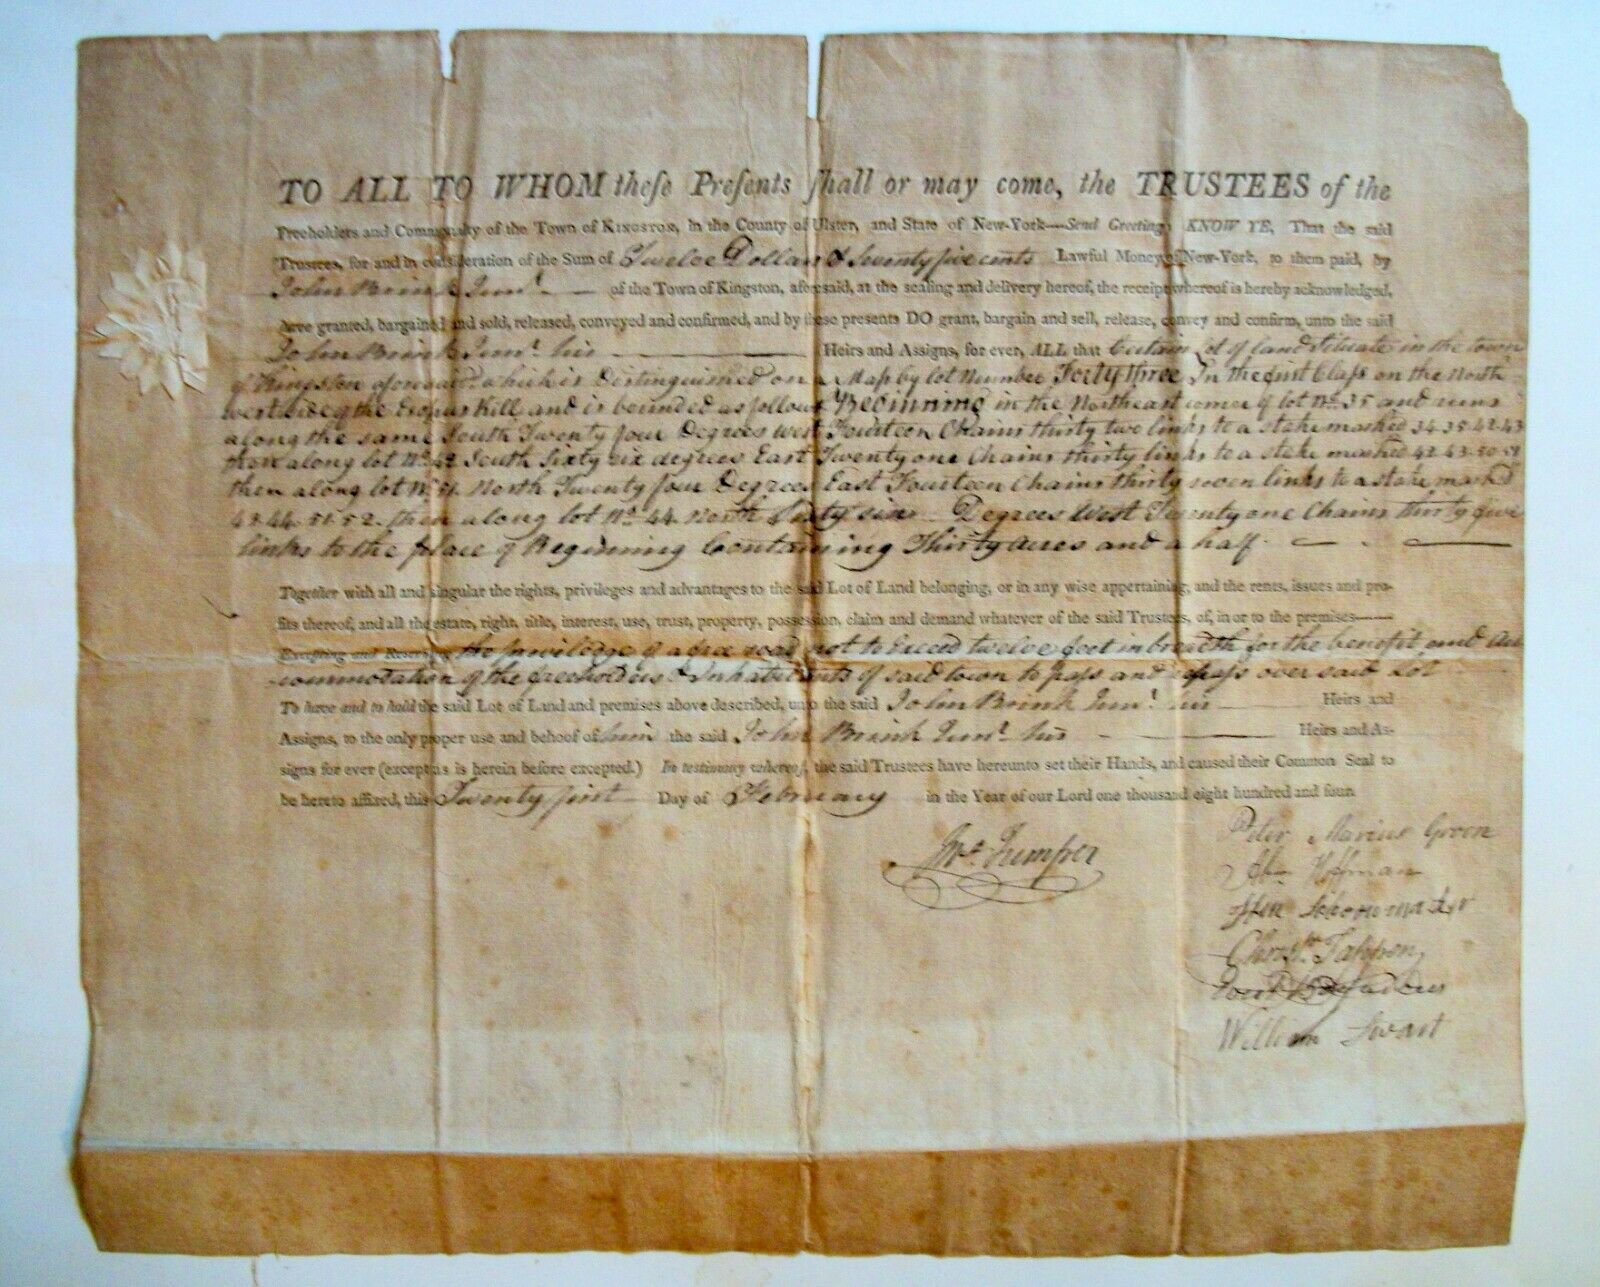 TO ALL TO WHOM theſe Preſents ſhall or may come, the TRUSTEES of the
Freeholders and Commonalty of the Town of KINGSTON, in the County of Ulster, and State of New-York—Send Greeting; KNOW YE, That the said
Trustees, for and in consideration of the Sum of Twelve Dollars & Seventy five cents Lawful Money of New-York, to them paid, by
John Brink Junr. — of the Town of Kingston, aforesaid, at the sealing and delivery hereof, the receipt whereof is hereby acknowledged,
have granted, bargained and sold, released, conveyed and confirmed, and by these presents DO grant, bargain and sell, release, convey and confirm, unto the said
John Brink Junr. his — Heirs and Assigns, for ever, ALL that Certain Lot of land Situate in the town
of Kingston aforesaid which is Distinguished on a Map by lot Number Forty three In the first Claſs on the North
west side of the Esopus Kill and is bounded as follows Beginning in the Northeast corner of lot No. 35 and runs
along the same South Twenty four Degrees west Fourteen Chains thirty two links to a stake marked 34.35.42.43
then along lot No. 42 South Sixty six degrees East Twenty one Chains thirty links to a stake marked 42.43.50.51
then along lot No. 51. North Twenty four Degrees East Fourteen Chains thirty seven links to a stake marked
43.44.51.52. then along lot No. 44. North Sixty six Degrees West Twenty one Chains thirty five
links to the place of Beginning Containing Thirty acres and a half.
Together with all and singular the rights, privileges and advantages to the said Lot of Land belonging, or in any wise appertaining, and the rents, issues and pro-
fits thereof, and all the estate, right, title, interest, use, trust, property, possession, claim and demand whatever of the said Trustees, of, in or to the premises——
Excepting and Reserving the priviledge of a free road not to Exceed twelve feet in breadth for the benefit and Ac
commotation of the freeholders & Inhabitants of said town to paſs and repaſs over said Lot
To have and to hold the said Lot of Land and premises above described, unto the said John Brink Junr. his — Heirs and
Assigns, to the only proper use and behoof of him the said John Brink Junr. his — Heirs and As-
signs for ever (except as is herein before excepted.) In testimony whereof, the said Trustees have hereunto set their Hands, and caused their Common Seal to
be hereto affixed, this Twenty first Day of February in the Year of our Lord one thousand eight hundred and four
Peter Marius Groen
Jno. Tremper
Abm. Hoffman
Hen Schoonmaker
Christr. Tappen
Evert Bogardus
William Swart